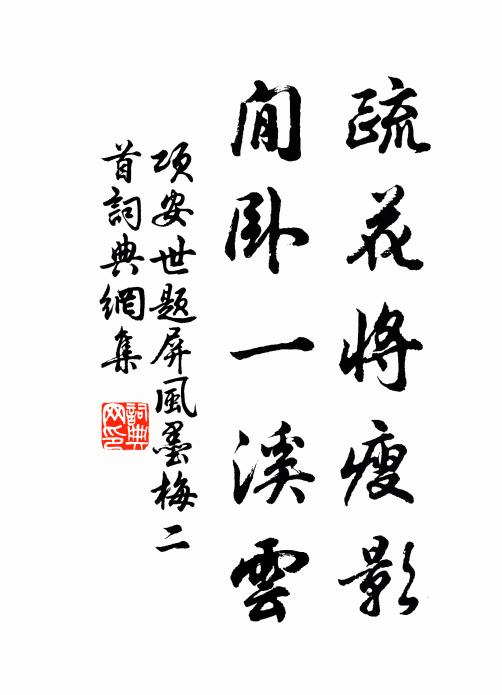 疏花將瘦影
閒卧一溪雲
項安世題屏風墨梅二
首詞典網集
詞典網印